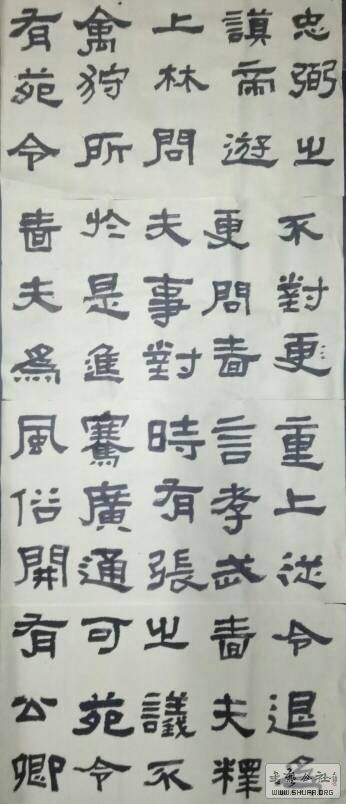 忠弼之
謨帝遊
上林問
禽狩所
有苑令
不對更
更問嗇
夫事對
於是進
嗇夫爲
重上從
言孝武
時有張
騫廣通
風俗開
令退
嗇夫釋
之議不
可苑令
有公卿
WWW.SHUFA.ORG